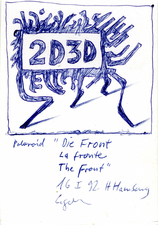 2D3D
Polaroid "Die Front
La fronte
The Front"
16 X 92 Hamburg